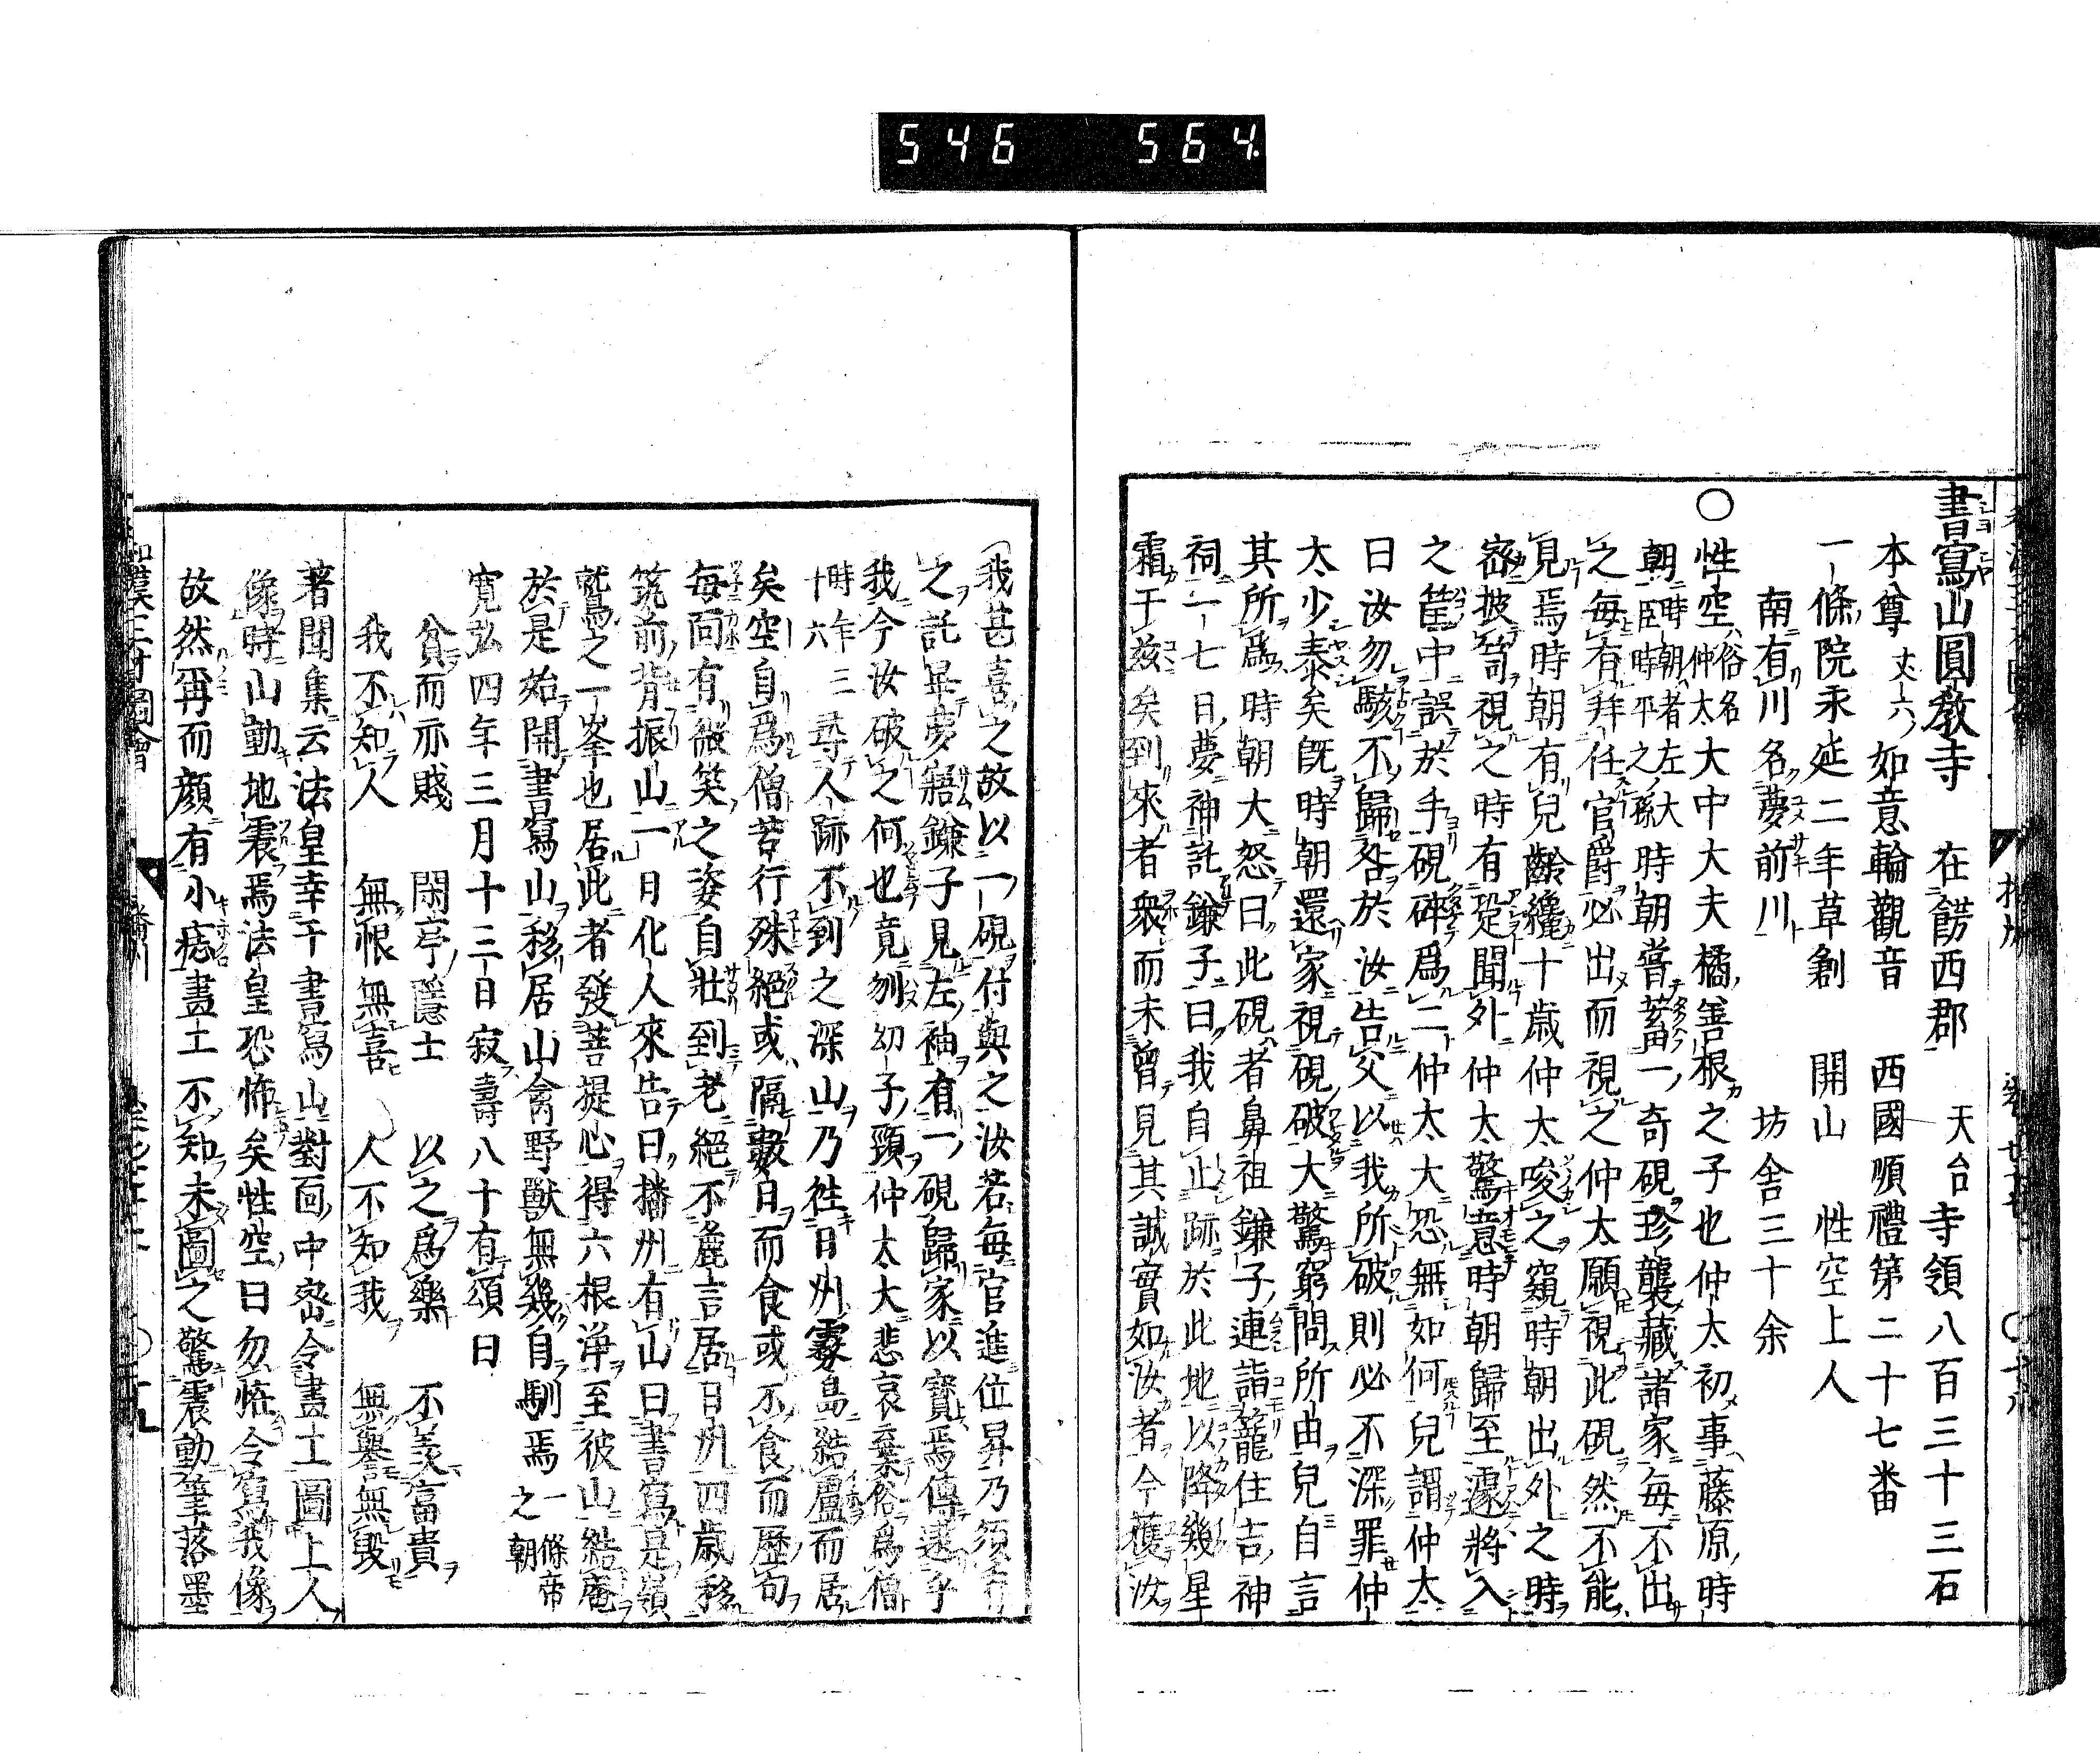 546 564
書寫山圓教寺 在餝西郡 天台 寺領八百三十三石
本尊 丈六 如意輪觀音 西國順禮第二十七番
一條院永延二年草創 開山 性空上人
南有川名夢前川 坊舍三十余
○性空 俗名仲太 大中大夫橘善根之子也仲太初事藤原時
朝 時朝者左大臣時平之孫 時朝嘗蓄一奇硯珍襲藏諸家毎不出
之毎有拜任官爵必出而視之仲太願視此硯然不能
見焉時朝有兒齡纔十歳仲太唆之窺時朝出外之時
密披笥視之時有跫聞外仲太驚意時朝歸至遽將入
之筐中誤於手硯碎爲二仲太大恐無如何兒謂仲太
曰汝勿駭不歸咎於汝告父以我所破則必不深罪仲
太少泰矣既時朝還家視硯破大驚窮問所由兒自言
其所爲時朝大怒曰此硯者鼻祖鎌子連詣籠住吉神
祠一七日夢神託鎌子曰我自止跡於此地以降幾星
霜于茲矣到來者衆而未曾見其誠實如汝者今獲汝
我甚喜之故以一硯付與之汝若毎官進位昇乃須有
之託畢夢寤鎌子見左袖有一硯歸家以寳焉傳遂乎
我今汝破之何也竟刎幼子頸仲太大悲哀棄俗爲僧
時年十六 三尋人跡不到之深山乃往日州霧島結廬而居
矣空自爲僧苦行殊絕或隔數日而食或不食而歷旬
毎面有微笑之姿自壯到老絕不麁言居日州四歳移
筑前背振山一日化人來告曰播州有山曰書寫是嶺
鷲之一峯也居此者發菩提心得六根淨至彼山結庵
於是始開書寫山移居山禽野獸無幾自馴焉 一條帝之朝
寛弘四年三月十三日寂壽八十有頌曰
貧而亦賤 閑亭隱士 以之爲樂 不羨富貴
我不知人 無恨無喜 人不知我 無譽無毀
著聞集云法皇幸于書寫山對面中密令畫工圖上人
像時山動地震焉法皇恐怖矣性空曰勿恠令寫我像
故然再而顏有小痣畫工不知未圖之驚震動筆落墨
和漢三才圖會 播州 十九